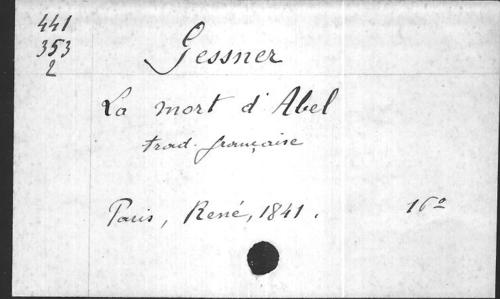 441
353
2
Gessner
La mort d'Abel
trad. française
Paris, René, 1841. 16º